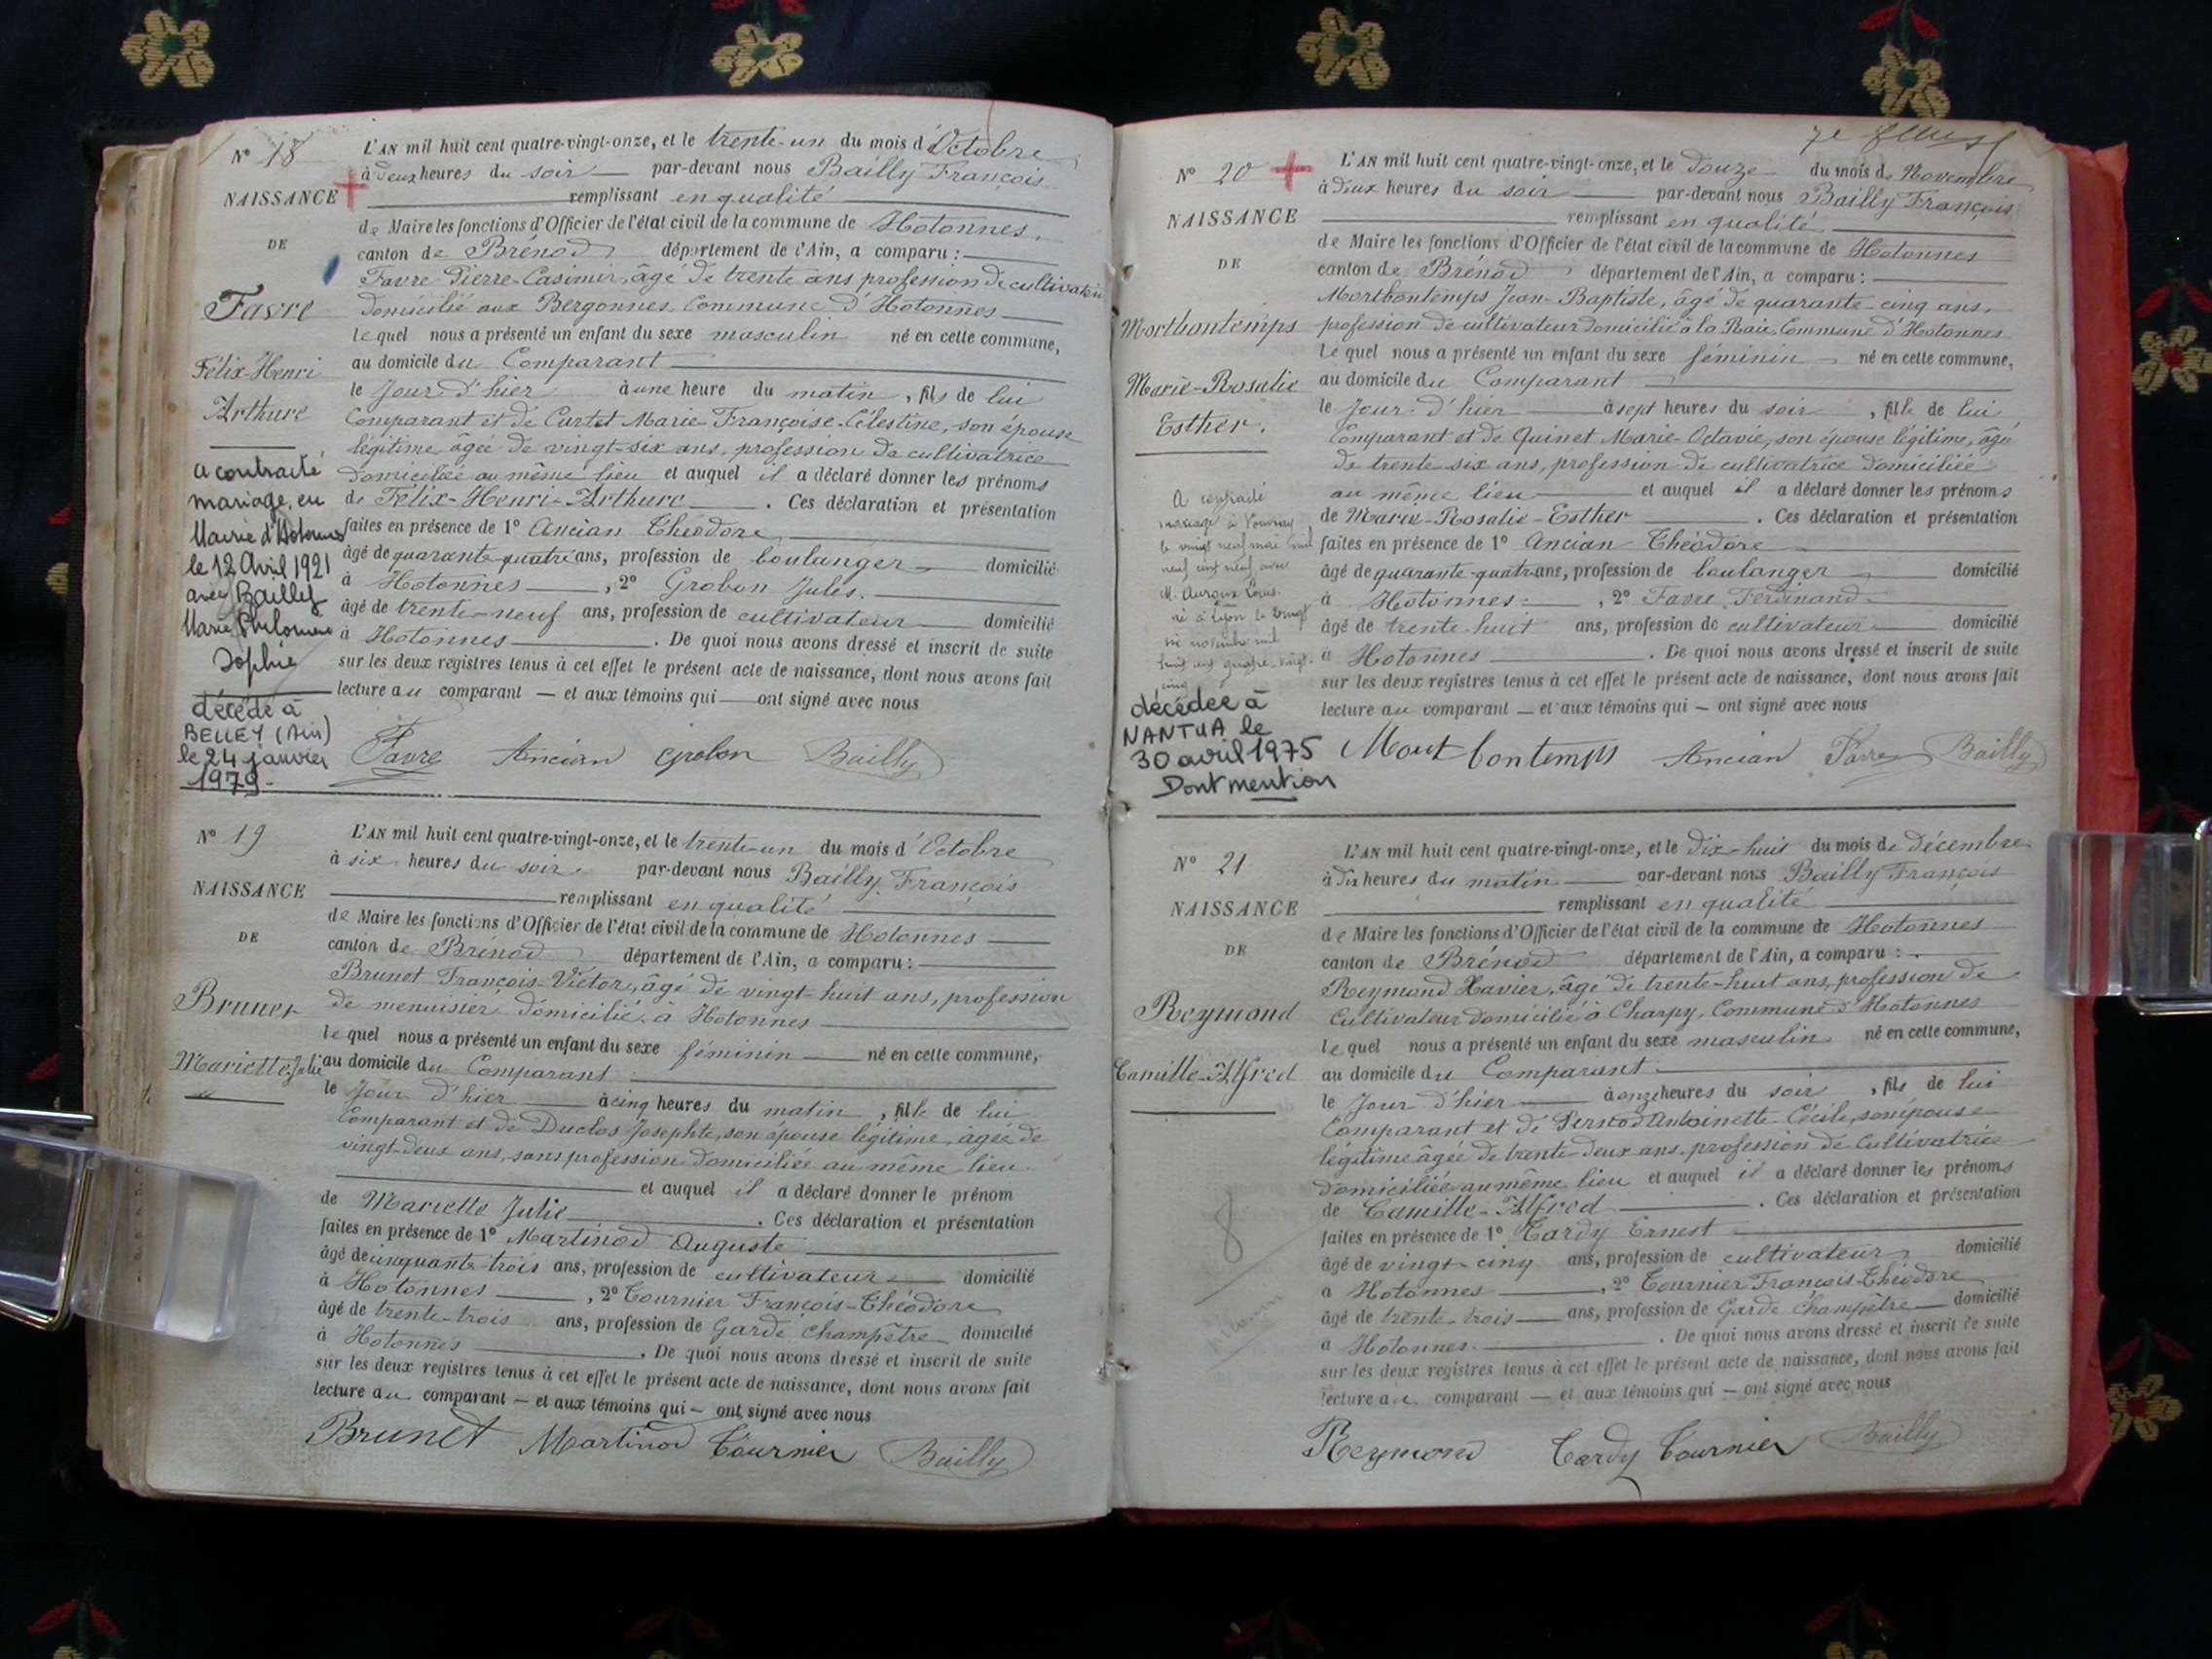 N° 18
NAISSANCE
DE
Favre
Félix-Henri
Arthure
a contracté
mariage en
Mairie d'Hotonnes
le 12 Avril 1921
avec Bailly
Marie Philomène
Sophie
décédé à
BELLEY (Ain)
le 24 janvier
1979.
L'AN mil huit cent quatre-vingt-onze, et le trente-un du mois d'Octobre
à deux heures du soir par-devant nous Bailly François
remplissant en qualité
de Maire les fonctions d'Officier de l'état civil de la commune de Hotonnes,
canton de Brénod département de l'Ain, a comparu :
Favre Pierre-Casimir, âgé de trente ans profession de cultivateur
domicilié aux Bergonnes, Commune d'Hotonnes
lequel nous a présenté un enfant du sexe masculin né en cette commune,
au domicile du Comparant
le Jour d'hier à une heure du matin, fils de lui
Comparant et de Curtet Marie-Françoise-Célestine, son épouse
légitime âgée de vingt-six ans, profession de cultivatrice
domiciliée au même lieu et auquel il a déclaré donner les prénoms
de Félix-Henri-Arthure. Ces déclaration et présentation
faites en présence de 1° Ancian Théodore
âgé de quarante quatre ans, profession de boulanger domicilié
à Hotonnes, 2° Grobon Jules.
âgé de trente-neuf ans, profession de cultivateur domicilié
à Hotonnes. De quoi nous avons dressé et inscrit de suite
sur les deux registres tenus à cet effet le présent acte de naissance, dont nous avons fait
lecture au comparant — et aux témoins qui — ont signé avec nous
Favre Ancian Grobon Bailly
N° 19
NAISSANCE
DE
Brunet
Mariette Julie
L'AN mil huit cent quatre-vingt-onze, et le trente-un du mois d'Octobre
à six heures du soir par-devant nous Bailly François
remplissant en qualité
de Maire les fonctions d'Officier de l'état civil de la commune de Hotonnes
canton de Brénod département de l'Ain, a comparu :
Brunet François-Victor, âgé de vingt-huit ans, profession
de menuisier domicilié à Hotonnes
lequel nous a présenté un enfant du sexe féminin né en cette commune,
au domicile du Comparant
le Jour d'hier à cinq heures du matin, fille de lui
Comparant et de Duclos Josephte, son épouse légitime, âgée de
vingt-deux ans, sans profession domiciliée au même lieu
et auquel il a déclaré donner le prénom
de Mariette Julie. Ces déclaration et présentation
faites en présence de 1° Martinod Auguste
âgé de cinquante-trois ans, profession de cultivateur domicilié
à Hotonnes, 2° Tournier François-Théodore
âgé de trente-trois ans, profession de Garde Champêtre domicilié
à Hotonnes. De quoi nous avons dressé et inscrit de suite
sur les deux registres tenus à cet effet le présent acte de naissance, dont nous avons fait
lecture au comparant — et aux témoins qui — ont signé avec nous
Brunet Martinod Tournier Bailly
N° 20
NAISSANCE
DE
Mortbontemps
Marie-Rosalie
Esther.
A contracté
mariage à
le vingt neuf mai mil
neuf cent neuf avec
M. Auroux Louis
né à Lyon le vingt
novembre mil
huit cent quatre-vingt-
cinq
décédée à
NANTUA le
30 avril 1975
Dont mention
L'AN mil huit cent quatre-vingt-onze, et le douze du mois de Novembre
à deux heures du soir par-devant nous Bailly François
remplissant en qualité
de Maire les fonctions d'Officier de l'état civil de la commune de Hotonnes
canton de Brénod département de l'Ain, a comparu :
Mortbontemps Jean-Baptiste, âgé de quarante-cinq ans,
profession de cultivateur domicilié à la Raie, Commune d'Hotonnes
lequel nous a présenté un enfant du sexe féminin né en cette commune,
au domicile du Comparant
le Jour d'hier à sept heures du soir, fille de lui
Comparant et de Quinet Marie-Octavie, son épouse légitime, âgée
de trente-six ans, profession de cultivatrice domiciliée
au même lieu et auquel il a déclaré donner les prénoms
de Marie-Rosalie-Esther. Ces déclaration et présentation
faites en présence de 1° Ancian Théodore
âgé de quarante-quatre ans, profession de boulanger domicilié
à Hotonnes, 2° Favre Ferdinand
âgé de trente-huit ans, profession de cultivateur domicilié
à Hotonnes. De quoi nous avons dressé et inscrit de suite
sur les deux registres tenus à cet effet le présent acte de naissance, dont nous avons fait
lecture au comparant — et aux témoins qui — ont signé avec nous
Mortbontemps Ancian Favre Bailly
N° 21
NAISSANCE
DE
Reymond
Camille-Alfred
8
L'AN mil huit cent quatre-vingt-onze, et le dix-huit du mois de décembre
à dix heures du matin par-devant nous Bailly François
remplissant en qualité
de Maire les fonctions d'Officier de l'état civil de la commune de Hotonnes
canton de Brénod département de l'Ain, a comparu :
Reymond Xavier, âgé de trente-huit ans, profession de
Cultivateur domicilié à Charpy, Commune d'Hotonnes
lequel nous a présenté un enfant du sexe masculin né en cette commune,
au domicile du Comparant
le Jour d'hier à onze heures du soir, fils de lui
Comparant et de Pernod Antoinette-Cécile, son épouse
légitime âgée de trente-deux ans, profession de Cultivatrice
domiciliée au même lieu et auquel il a déclaré donner les prénoms
de Camille-Alfred. Ces déclaration et présentation
faites en présence de 1° Tardy Ernest
âgé de vingt-cinq ans, profession de cultivateur domicilié
à Hotonnes, 2° Tournier François-Théodore
âgé de trente-trois ans, profession de Garde Champêtre domicilié
à Hotonnes. De quoi nous avons dressé et inscrit de suite
sur les deux registres tenus à cet effet le présent acte de naissance, dont nous avons fait
lecture au comparant — et aux témoins qui — ont signé avec nous
Reymond Tardy Tournier Bailly